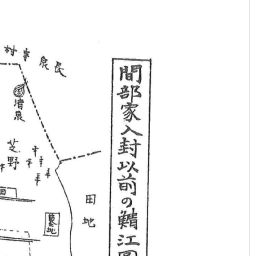 間部家入封以前の鯖江図
長泉寺村
清泉
芝野
田地
墓地